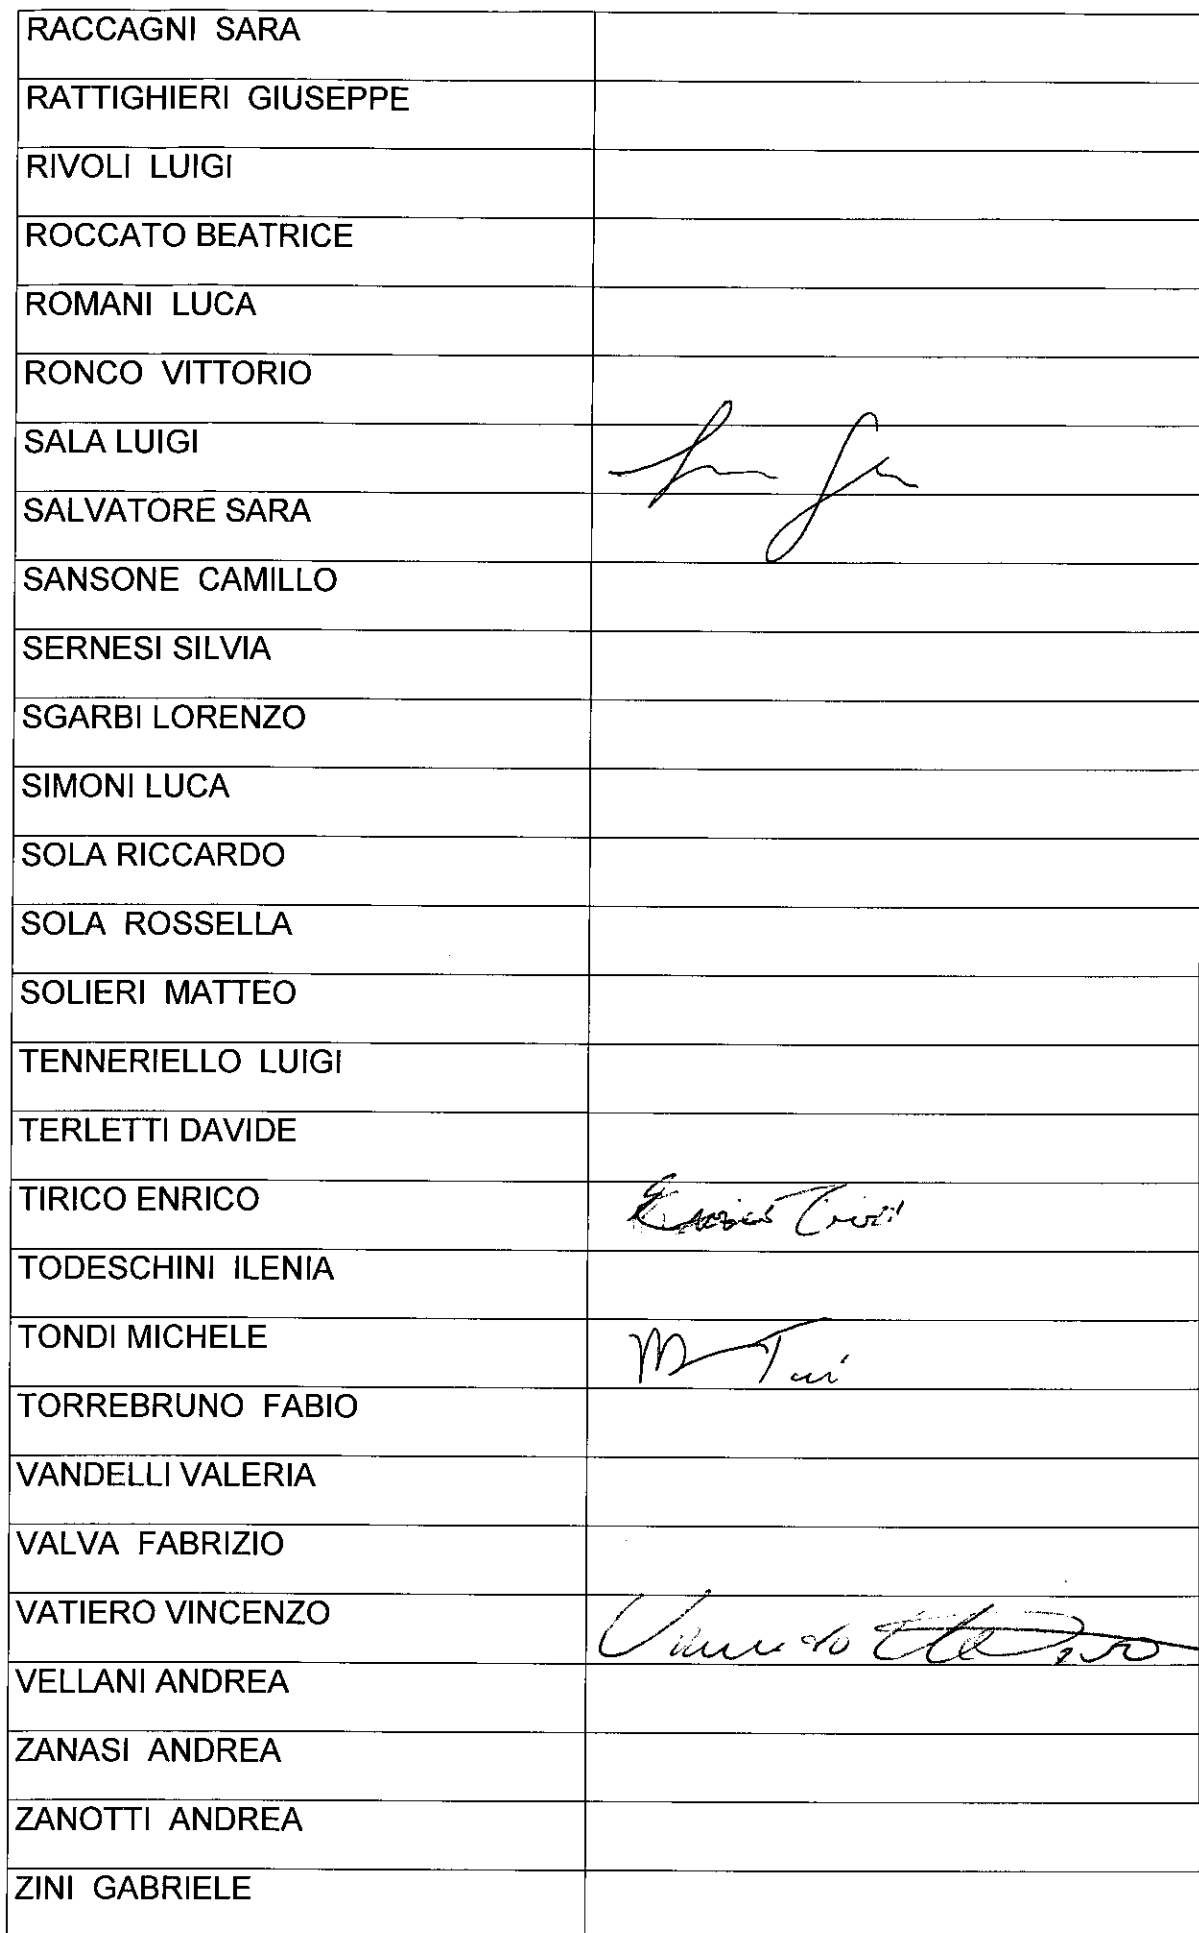 RACCAGNI SARA
RATTIGHIERI GIUSEPPE
RIVOLI LUIGI
ROCCATO BEATRICE
ROMANI LUCA
RONCO VITTORIO
SALA LUIGI
SALVATORE SARA
SANSONE CAMILLO
SERNESI SILVIA
SGARBI LORENZO
SIMONI LUCA
SOLA RICCARDO
SOLA ROSSELLA
SOLIERI MATTEO
TENNERIELLO LUIGI
TERLETTI DAVIDE
TIRICO ENRICO
TODESCHINI ILENIA
TONDI MICHELE
TORREBRUNO FABIO
VANDELLI VALERIA
VALVA FABRIZIO
VATIERO VINCENZO
VELLANI ANDREA
ZANASI ANDREA
ZANOTTI ANDREA
ZINI GABRIELE